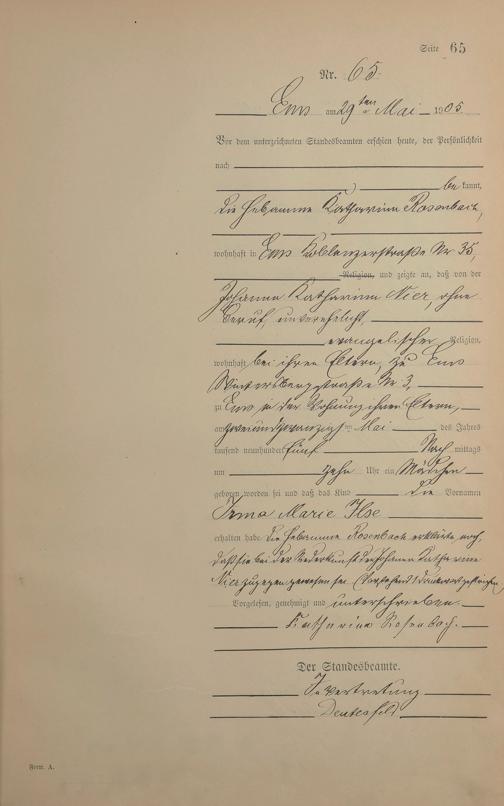 Seite 65
Nr. 65.
Ems am 29ten Mai 1905.
Vor dem unterzeichneten Standesbeamten erschien heute, der Persönlichkeit
nach
be kannt,
die Hebamme Katharina Rosenbach,
wohnhaft in Ems Koblenzerstraße Nr 35,
Religion, und zeigte an, daß von der
Johanna Katharina Nier, ohne
Beruf, unverehelicht,
evangelischer Religion,
wohnhaft bei ihren Eltern, zu Ems
Wintersbergstraße Nr 3,
zu Ems in der Wohnung ihrer Eltern,
am zweiundzwanzigsten Mai des Jahres
tausend neunhundert fünf Nach mittags
um zehn Uhr ein Mädchen
geboren worden sei und daß das Kind die Vornamen
Irma Marie Ilse
erhalten habe. Die Hebamme Rosenbach erklärte noch,
daß sie bei der Niederkunft der Johanna Katharina
Nier zugegen gewesen sei. (Vorstehend 1 Druckwort gestrichen)
Vorgelesen, genehmigt und unterschrieben.
Katharina Rosenbach.
Der Standesbeamte.
In Vertretung
Form. A.